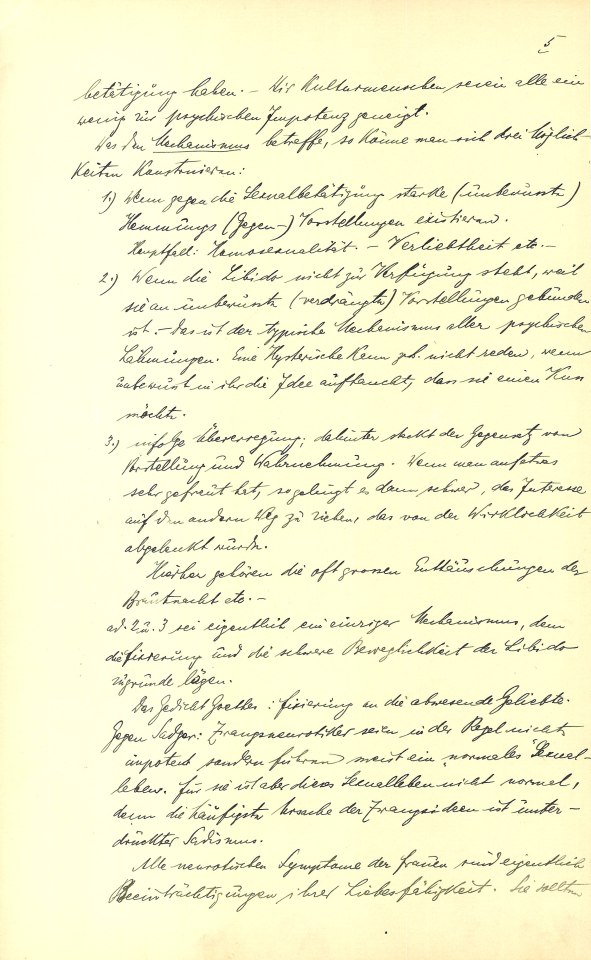 5
betätigung haben. – Wir Kulturmenschen seien alle ein
wenig zur psychischen Impotenz geneigt.
Was den Mechanismus betreffe, so könne man sich drei Möglich-
keiten konstruieren:
1.) Wenn gegen die Sexualbetätigung starke (unbewusste)
Hemmungs (Gegen-) Vorstellungen existieren.
Hauptfall: Homosexualität. – Verliebtheit etc. –
2.) Wenn die Libido nicht zur Verfügung steht, weil
sie an unbewusste (verdrängte) Vorstellungen gebunden
ist. – Das ist der typische Mechanismus aller psychischen
Lähmungen. Eine Hysterische kann z.b. nicht reden, wenn
unbewusst in ihr die Idee auftaucht, dass sie einen Kuss
möchte.
3.) infolge Übererregung; dahinter steckt der Gegensatz von
Vorstellung und Wahrnehmung. Wenn man auf etwas
sehr gefreut hat, so gelingt es dann schwer, das Interesse
auf den andern Weg zu ziehen, das von der Wirklichkeit
abgelenkt wurde.
Hieher gehören die oft grossen Enttäuschungen der
Brautnacht etc. –
ad. 2 u. 3 sei eigentlich ein einziger Mechanismus, dem
die fixierung und die schwere Beweglichkeit der Libido
zugrunde lägen.
Das Gedicht Goethes: fixierung an die abwesende Geliebte.
Gegen Sadger: Zwangsneurotiker seien in der Regel nicht
impotent sondern führen meist ein "normales" Sexual-
leben. für sie ist aber dieses Sexualleben nicht normal,
denn die häufigste Ursache der Zwangsideen ist unter-
drückter Sadismus.
Alle neurotischen Symptome der frauen sind eigentlich
Beeinträchtigungen ihrer Liebesfähigkeit. Sie sollten